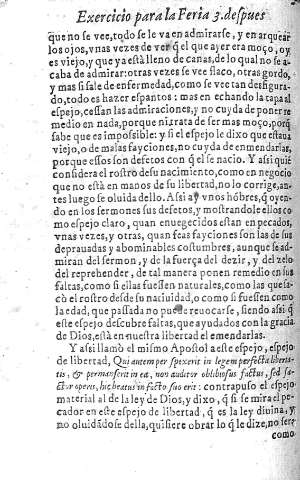 Exercicio para la Feria 3. despues
que no se vee, todo se le va en admirarse, y en arquear
los ojos, vnas vezes de ver q̃ el que ayer era moço, oy
es viejo, y que ya està lleno de canas, de lo qual no se a-
caba de admirar: otras vezes se vee flaco, otras gordo,
y mas si sale de enfermedad, como se vee tan desfigu-
rado, todo es hazer espantos: mas en echando la tapa al
espejo, cessan las admiraciones, y no cuyda de poner re
medio en nada, porque ni trata de ser mas moço, porq̃
sabe que es impossible: y si el espejo le dixo que estaua
viejo, o de malas fayciones, no cuyda de enmendarlas,
porque essos son defetos con q̃ el se nacio. Y assi quiẽ
considera el rostro de su nacimiento, como en negocio
que no està en manos de su libertad, no lo corrige, an-
tes luego se oluida dello. Assi ay vnos hõbres, q̃ oyen-
do en los sermones sus defetos, y mostrandole ellos co
mo espejo claro, quan enuegecidos estan en pecados,
vnas vezes, y otras, quan feas fayciones son las de sus
deprauadas y abominables costumbres, aunque se ad-
miran del sermon, y de la fuerça del dezir, y del zelo
del reprehender, de tal manera ponen remedio en sus
faltas, como si ellas fuessen naturales, como las que sa-
cò el rostro desde su natiuidad, o como si fuessen como
la edad, que passada no puede reuocarse, siendo assi q̃
este espejo descubre faltas, que ayudados con la gracia
de Dios, està en nuestra libertad el emendarlas.
Y assi llamò el mismo Apostol a este espejo, espejo
de libertad, Qui autem perspexerit in legem perfectæ liberta-
tis, & permanserit in ea, non auditor obliuiosus factus, sed fa-
ctor operis, hic beatus in facto suo erit: contrapuso el espejo
material al de la ley de Dios, y dixo, q̃ si se mira el pe-
cador en este espejo de libertad, q̃ es la ley diuina, y
no oluidãdose della, quisiere obrar lo q̃ le dize, no serà
como